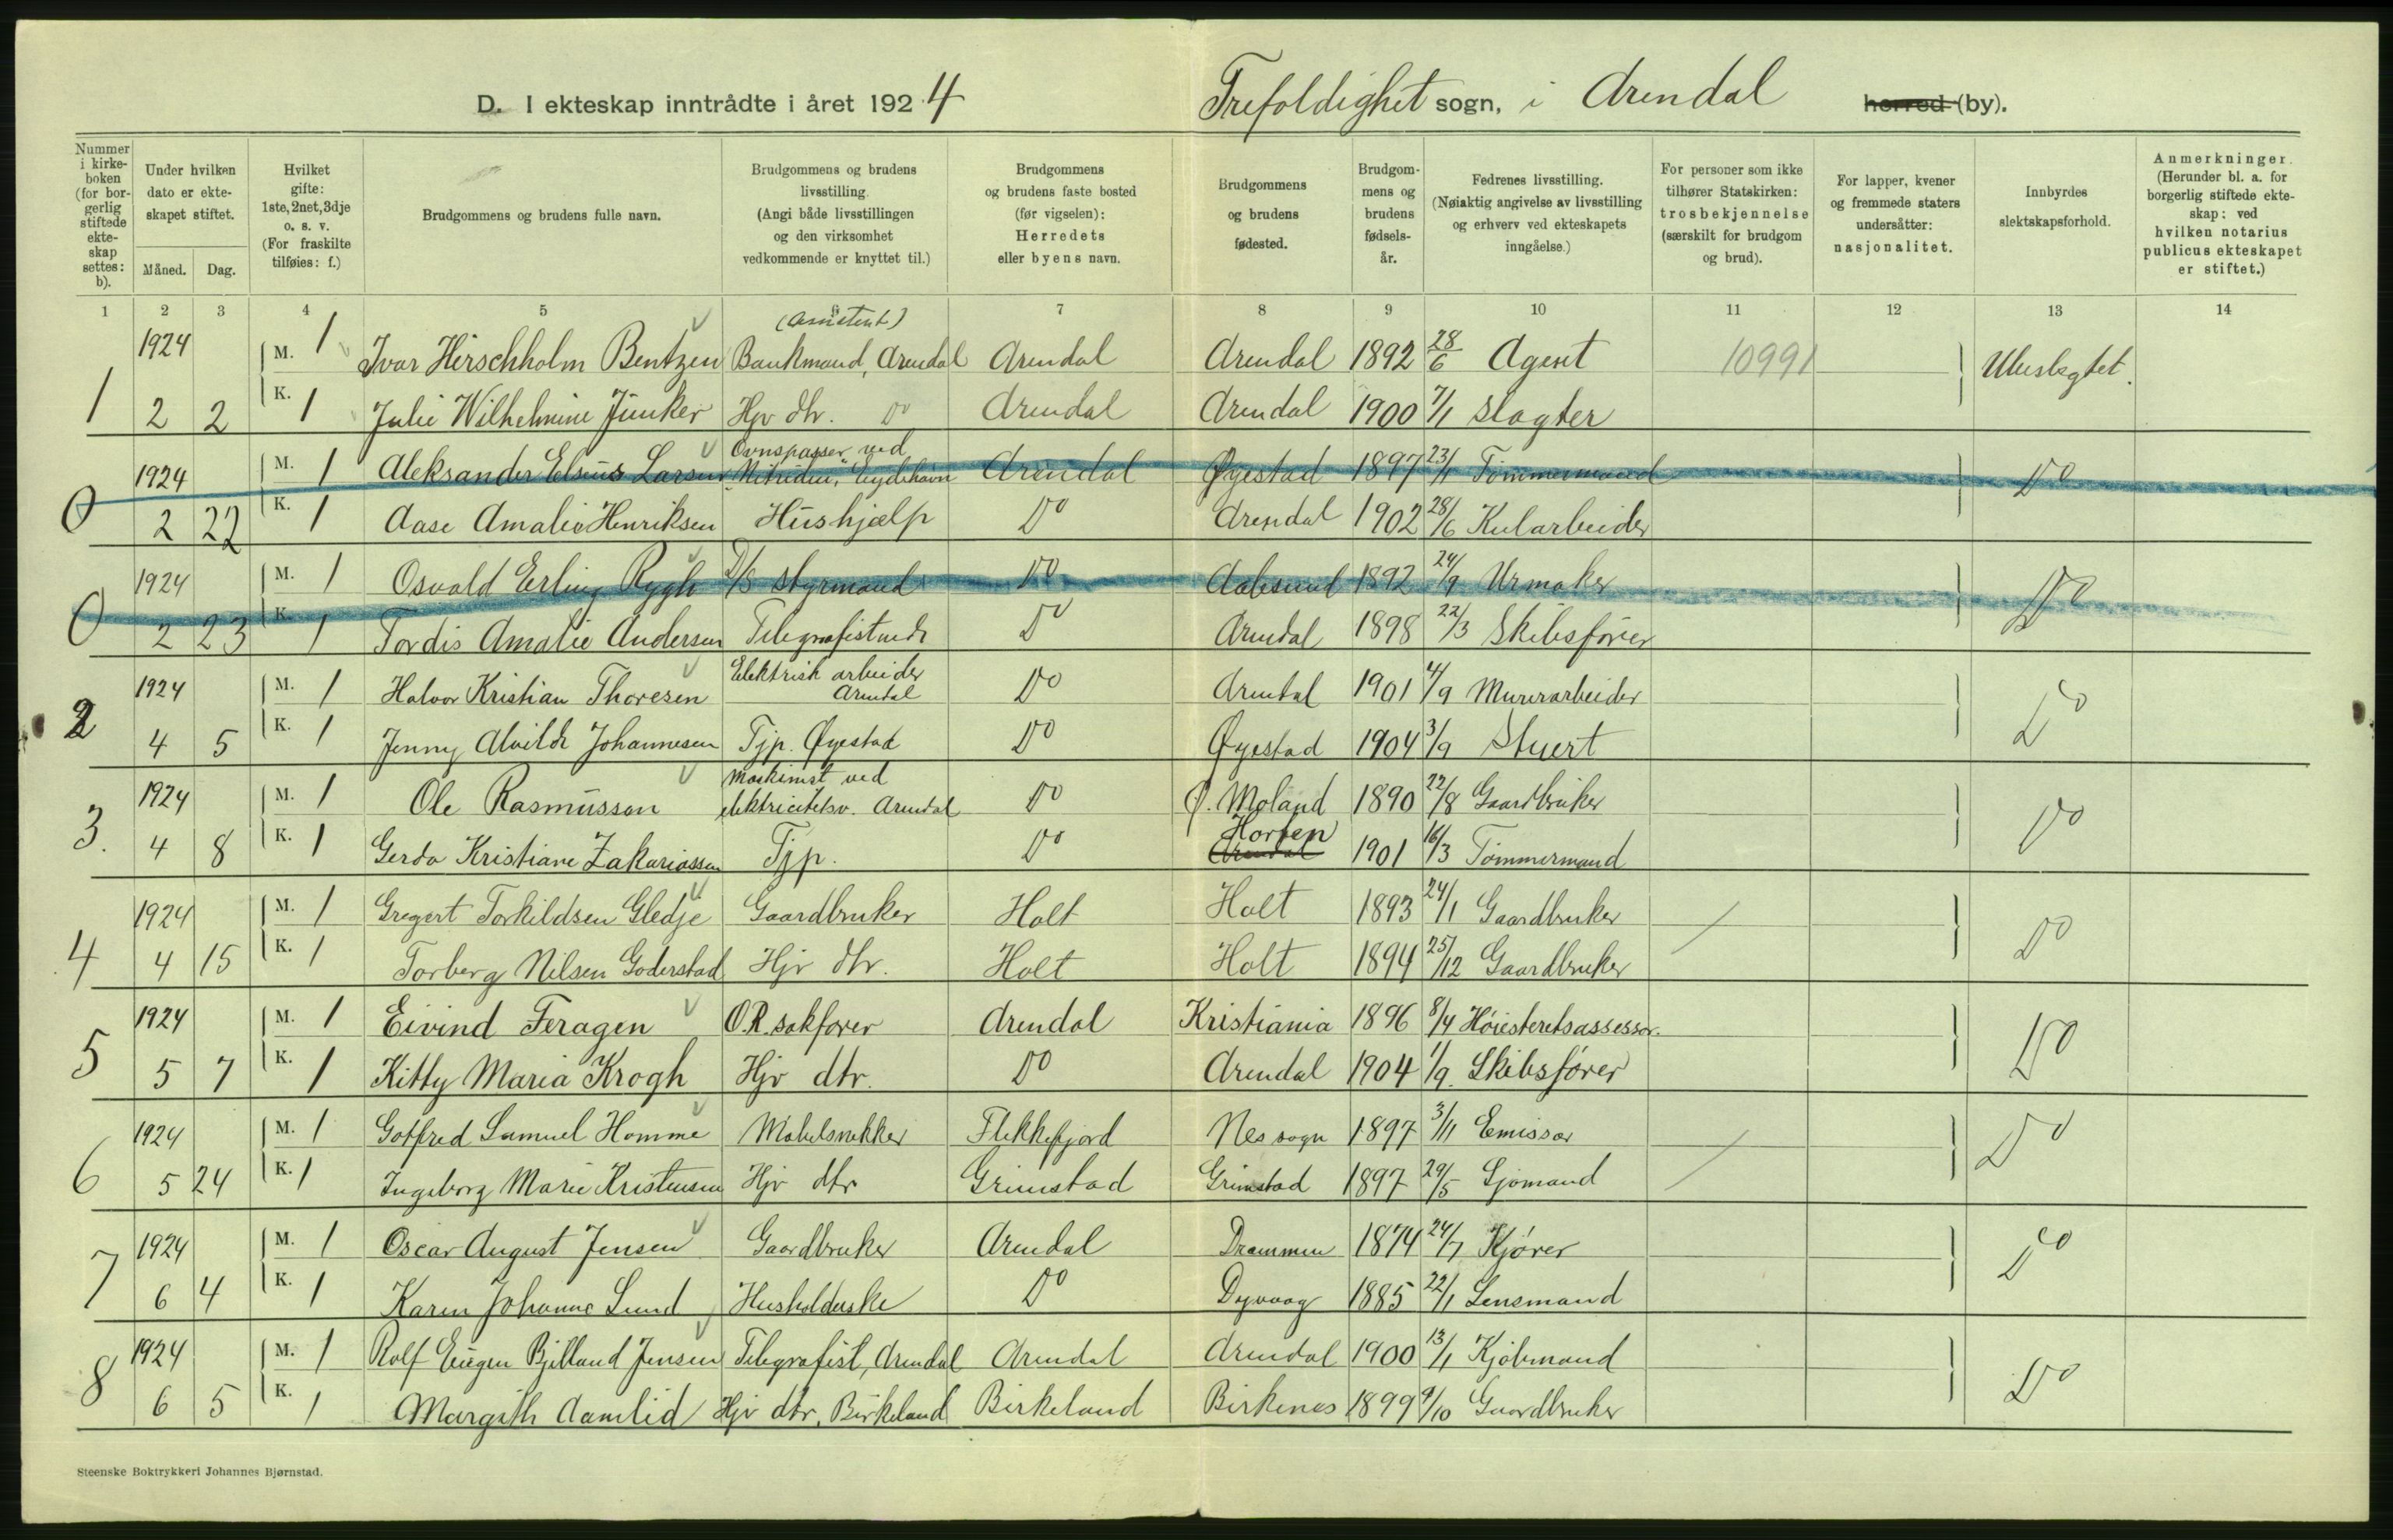 D. I ekteskap inntrådte i året 1924 Trefoldighet sogn, i Arendal herred (by).
Nummer i kirkeboken (for borgerlig stiftede ekteskap settes: b).
Under hvilken dato er ekteskapet stiftet.
Måned. Dag.
Hvilket gifte: 1ste, 2net, 3dje o. s. v. (For fraskilte tilføies: f.)
Brudgommens og brudens fulle navn.
Brudgommens og brudens livsstilling. (Angi både livsstillingen og den virksomhet vedkommende er knyttet til.)
Brudgommens og brudens faste bosted (før vigselen): Herredets eller byens navn.
Brudgommens og brudens fødested.
Brudgommens og brudens fødselsår.
Fedrenes livsstilling. (Nøiaktig angivelse av livsstilling og erhverv ved ekteskapets inngåelse.)
For personer som ikke tilhører Statskirken: trosbekjennelse (særskilt for brudgom og brud).
For lapper, kvener og fremmede staters undersåtter: nasjonalitet.
Innbyrdes slektskapsforhold.
Anmerkninger. (Herunder bl. a. for borgerlig stiftede ekteskap: ved hvilken notarius publicus ekteskapet er stiftet.)
1 2 3 4 5 6 7 8 9 10 11 12 13 14
(Assistent)
1924 M. 1 Ivar Hirschholm Bentzen Bankmand, Arendal Arendal Arendal 1892 28/6 Agent 10991 Ubeslegtet.
1 2 2 K. 1 Julie Wilhelmine Junker Hjv dtr. Do Arendal Arendal 1900 7/1 Slagter
Ovnspasser ved
1924 M. 1 Aleksander Elsius Larsen "Nitriden", Eydehavn Arendal Øyestad 1897 23/1 Tømmermand Do
0 2 22 K. 1 Aase Amalie Henriksen Hushjælp Do Arendal 1902 28/6 Kularbeider
1924 M. 1 Osvald Erling Rygh D/S styrmand Do Aalesund 1892 24/9 Urmaker Do
0 2 23 K. 1 Tordis Amalie Andersen Telegrafistinde Do Arendal 1898 22/3 Skibsfører
Elektrisk arbeider
1924 M. 1 Halvor Kristian Thoresen Arendal Do Arendal 1901 4/9 Murerarbeider Do
2 4 5 K. 1 Jenny Alvilde Johannesen Tjp. Øyestad Do Øyestad 1904 3/9 Stuert
Maskinist ved
1924 M. 1 Ole Rasmussen elektricitetsv. Arendal Do Ø. Moland 1890 22/8 Gaardbruker Do
Horten
3. 4 8 K. 1 Gerda Kristiane Zakariassen Tjp. Do Arendal 1901 16/3 Tømmermand
1924 M. 1 Gregert Torkildsen Gledje Gaardbruker Holt Holt 1893 24/1 Gaardbruker Do
4 4 15 K. 1 Torberg Nilsen Goderstad Hjv dtr. Holt Holt 1894 25/12 Gaardbruker
1924 M. 1 Eivind Feragen O.R. sakfører Arendal Kristiania 1896 8/4 Høiesteretsassessor. Do
5 5 7 K. 1 Kitty Maria Krogh Hjv dtr. Do Arendal 1904 1/9. Skibsfører
1924 M. 1 Gotfred Samuel Homme Møbelsnekker Flekkefjord Nes sogn 1897 3/11 Emissær Do
6 5 24 K. 1 Ingeborg Marie Kristensen Hjv dtr Grimstad Grimstad 1897 29/5 Sjømand
1924 M. 1 Oscar August Jensen Gaardbruker Arendal Drammen 1874 24/7 Kjører Do
7 6 4 K. 1 Karen Johanne Lund Husholderske Do Dypvaag 1885 22/1 Lensmand
1924 M. 1 Rolf Eugen Bjelland Jensen Telegrafist, Arendal Arendal Arendal 1900 13/1 Kjøbmand Do
8 6 5 K. 1 Margith Aamlid Hjv dtr, Birkeland Birkeland Birkenes 1899 9/10 Gaardbruker
Steenske Boktrykkeri Johannes Bjørnstad.